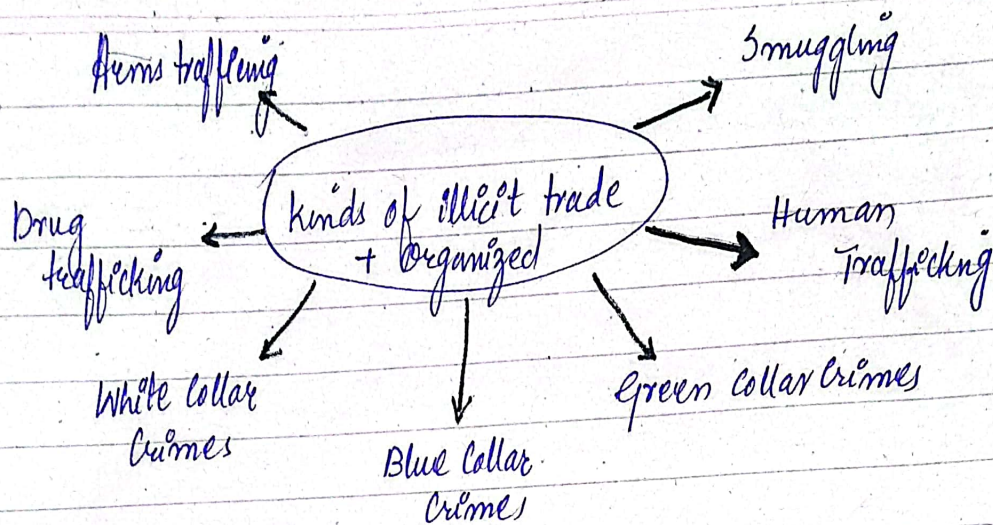 Arms traffcing
Smuggling
Kinds of illicit trade
+ Organized
Drug
trafficking
Human
Trafficking
White Collar
Crimes
Blue Collar
Crimes
Green Collar Crimes